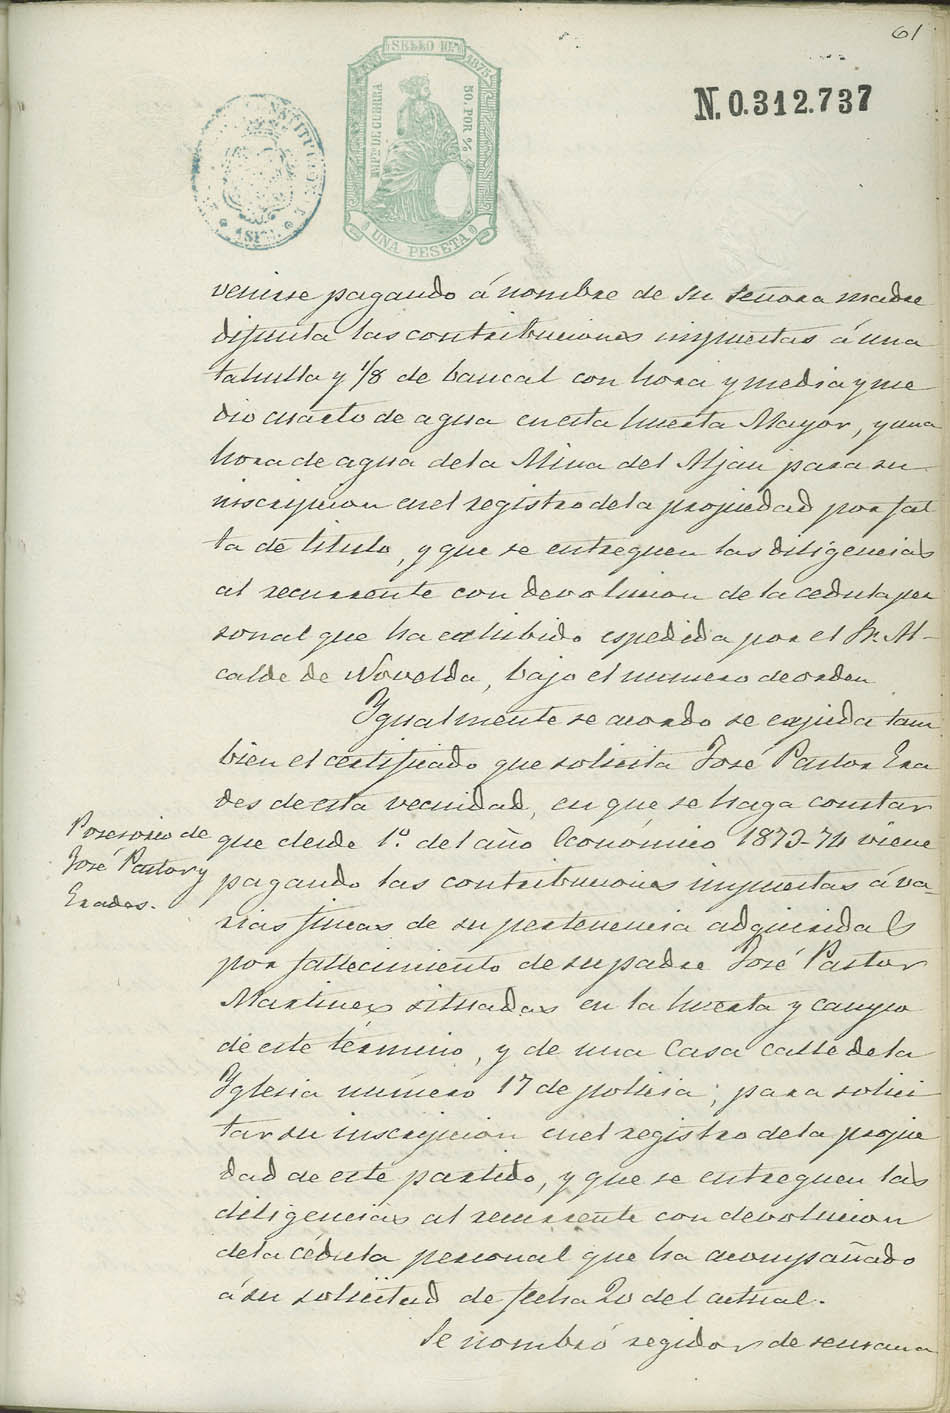 61
SELLO 10º
1875
IMPTO DE GUERRA
50 POR %
UNA PESETA
N. 0.312.737
venirse pagando á nombre de su señora madre
difunta las contribuciones impuestas á una
tahulla y 1/8 de bancal con hora y media y me
dio cuarto de agua en esta huerta Mayor, y una
hora de agua de la Mina del Aljau para su
inscripcion en el registro de la propiedad por fal
ta de titulo, y que se entreguen las diligencias
al recurrente con devolucion de la cedula per
sonal que ha exhibido espedida por el Sr. Al-
calde de Novelda, bajo el numero de orden
Ygualmente se acordo se expida tam
bien el certificado que solicita José Pastor Era
des de esta vecindad, en que se haga constar
Posesorio de
José Pastor y
Erades.
que desde 1º. del año Económico 1873-74 viene
pagando las contribuciones impuestas á va-
rias fincas de su pertenencia adquiridas
por fallecimiento de su padre José Pastor
Martinez situadas en la huerta y campo
de este término, y de una Casa calle de la
Yglesia número 17 de policia; para solici
tar su inscripcion en el registro de la propie
dad de este partido, y que se entreguen las
diligencias al recurrente con devolucion
de la cédula personal que ha acompañado
á su solicitud de fecha 20 del actual.
Se nombró regidor de semana